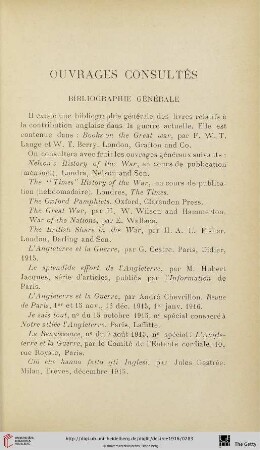 OUVRAGES CONSULTÉS
BIBLIOGRAPHIE GÉNÉRALE
Il existe une bibliographie générale des livres relatifs à
la contribution anglaise dans la guerre actuelle. Elle est
contenue dans : Books on the Great war, par F. W. T.
Lange et W. T. Berry. London, Grafton and Co.
On consultera avec fruit les ouvrages généraux suivants :
Nelson's History of the War, en cours de publication
(mensuel). Londres, Nelson and Son.
The "Times" History of the War, en cours de publica-
tion (hebdomadaire). Londres, The Times.
The Oxford Pamphlets. Oxford, Clarendon Press.
The Great War, par H. W. Wilson and Hammerton.
War of the Nations, par E. Wallace.
The British Share in the War, par H. A. L. Fisher.
London, Darling and Son.
L'Angleterre et la Guerre, par G. Cestre. Paris, Didier,
1915.
Le splendide effort de l'Angleterre, par M. Hubert
Jacques, série d'articles, publiés par l'Information de
Paris.
L'Angleterre et la Guerre, par André Chevrillon. Revue
de Paris, 1er et 15 nov., 15 déc. 1915, 1er janv. 1916.
Je sais tout, nº du 15 octobre 1915, nº spécial consacré à
Notre alliée l'Angleterre. Paris, Laffitte.
La Renaissance, nº du août 1915, nº spécial : L'Angle-
terre et la Guerre, par le Comité de l'Entente cordiale, 10,
rue Royale, Paris.
Ciò che hanno fatto gli Inglesi, par Jules
Milan, Trèves, décembre 1915.